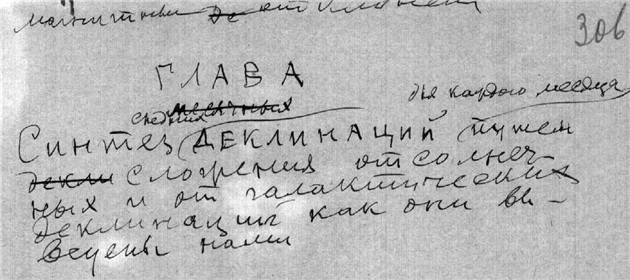 306
ГЛАВА
месячных для каждого месяца
Синтез ДЕКЛИНАЦИЙ путем
декли сложения от солнеч-
ных и от галактических
деклинаций как они вы-
ведены нами